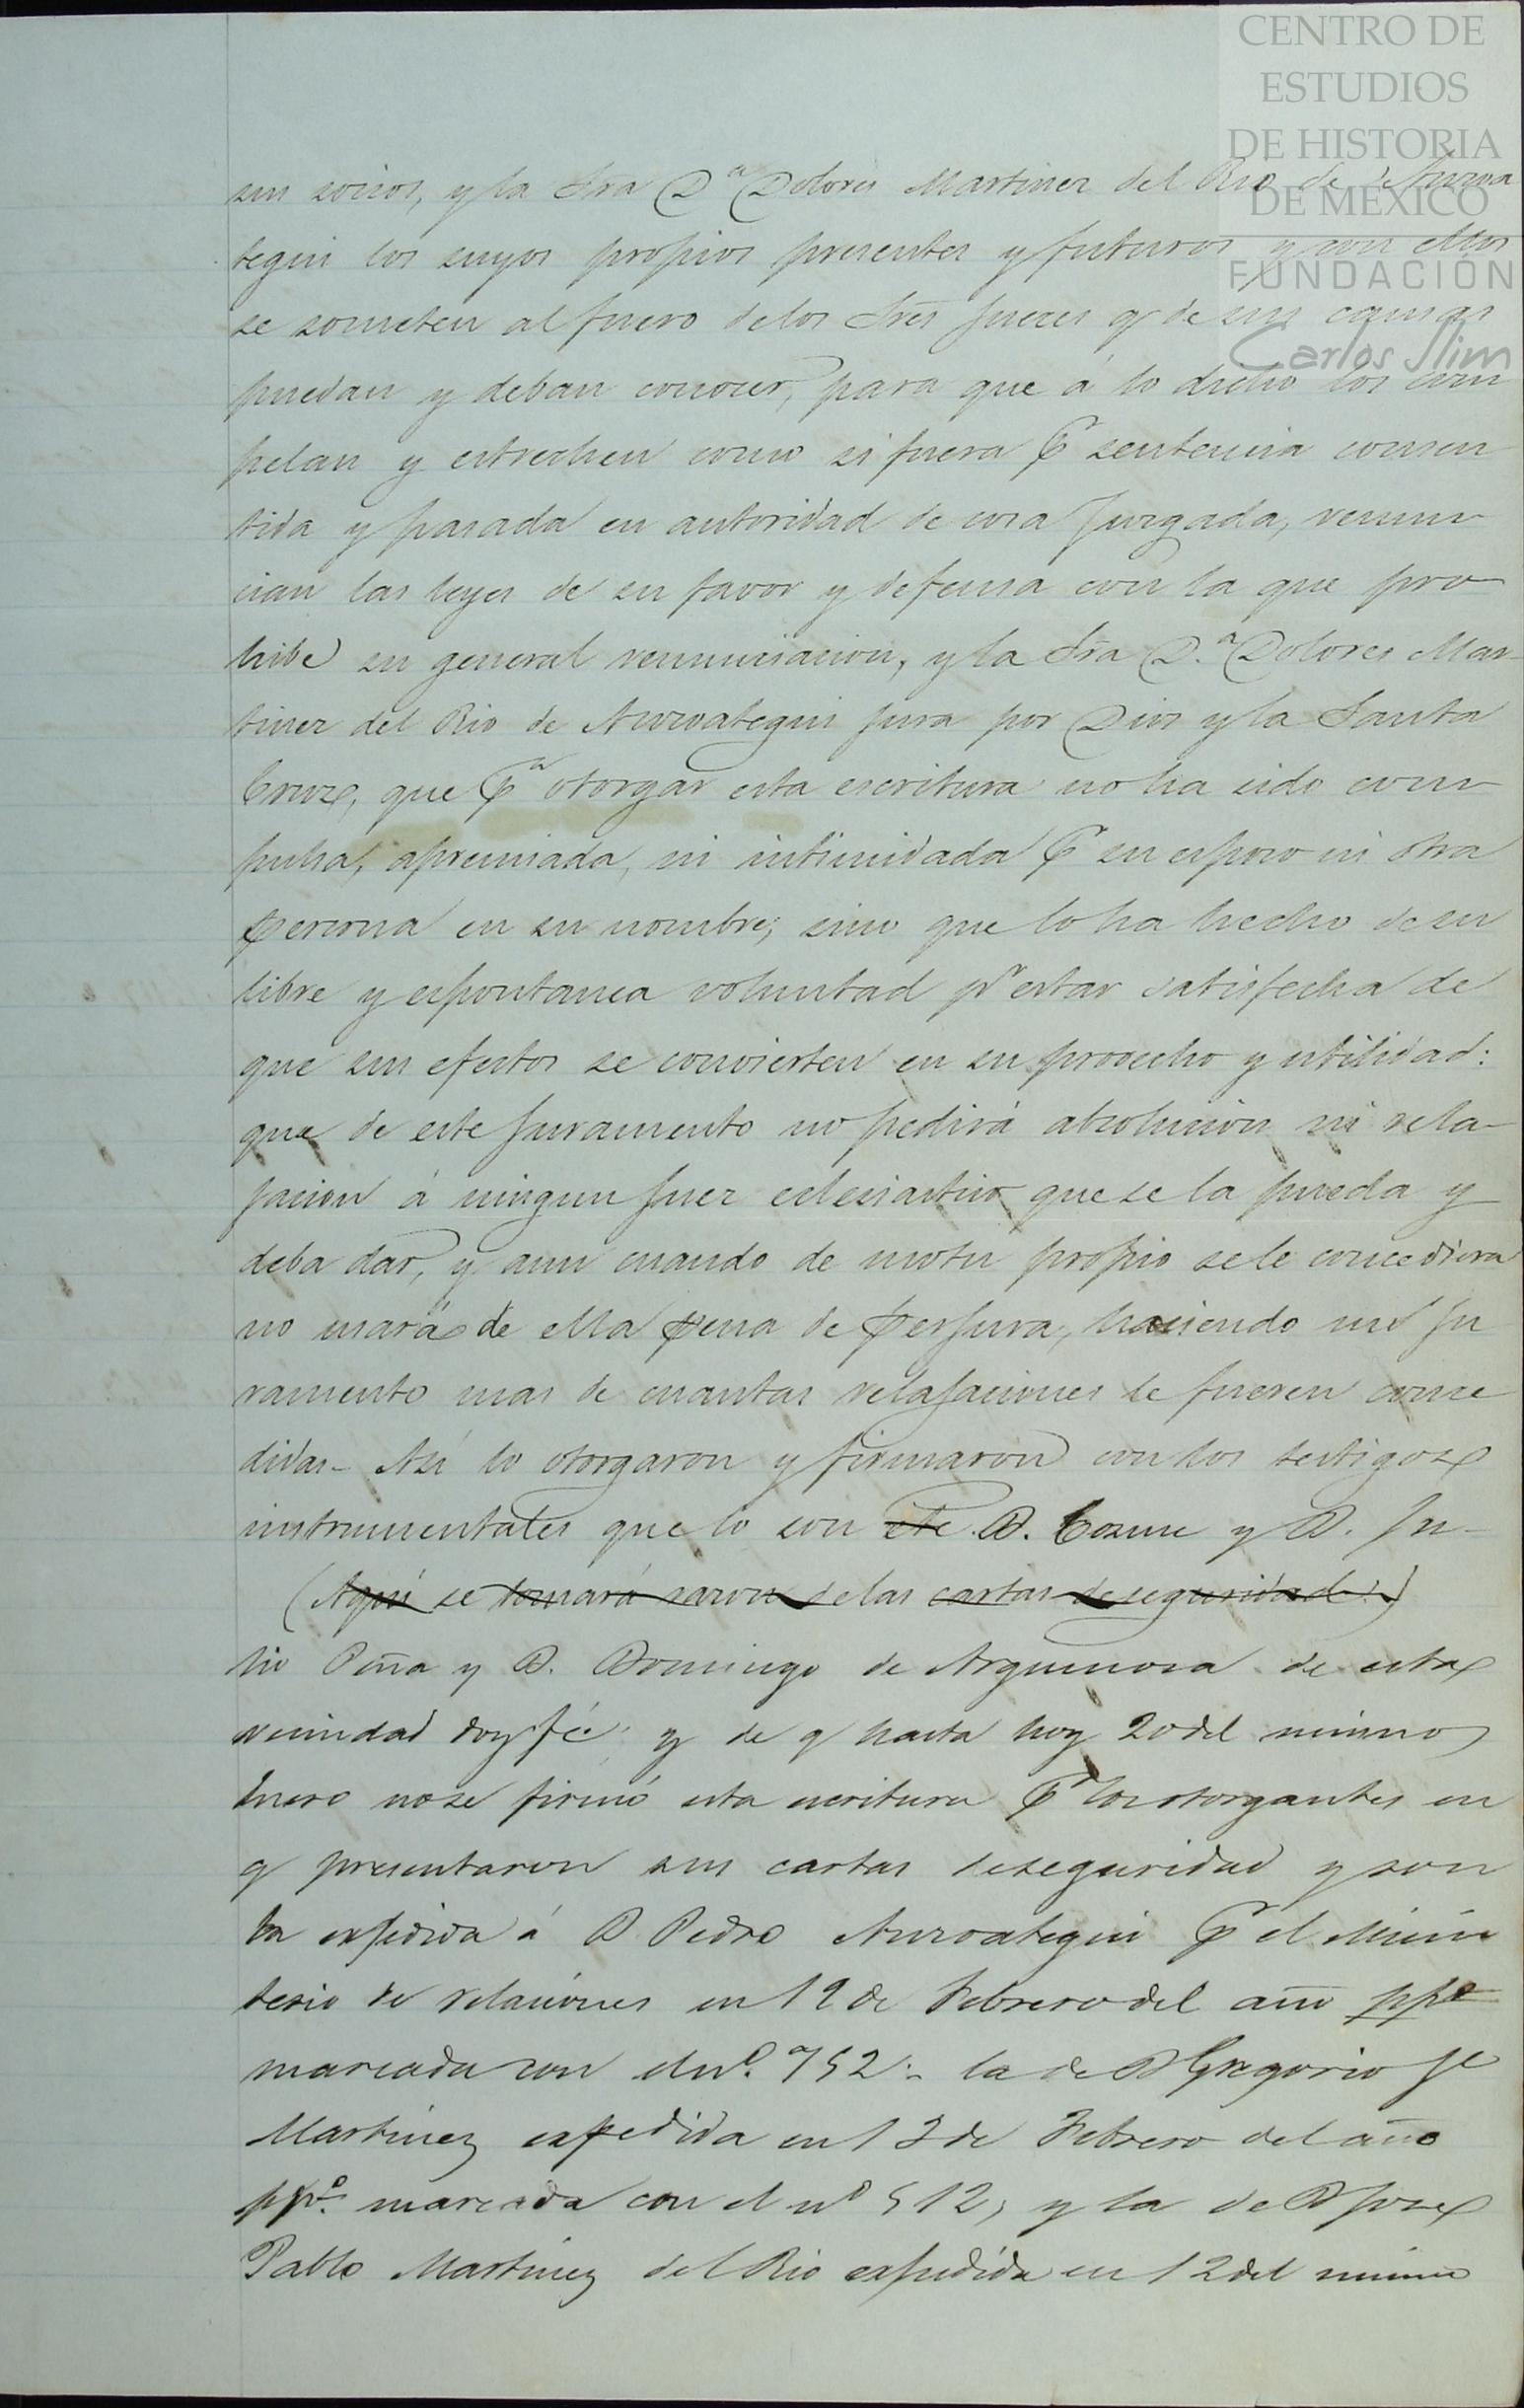 CENTRO DE
ESTUDIOS
DE HISTORIA
DE MÉXICO
FUNDACIÓN
Carlos Slim
sus socios, y la Sra D.ª Dolores Martinez del Rio de Anzoa
tegui los suyos propios presentes y futuros y con ellos
se someten al fuero de los Sres Jueces q de sus causas
puedan y deban conocer, para que á lo dicho los com
pelan y estrechen como si fuera pr sentencia consen
tida y pasada en autoridad de cosa Juzgada, renun
cian las leyes de su favor y defensa con la que pro
hibe su general renunciacion, y la Sra D.ª Dolores Mar
tinez del Rio de Anzoategui jura por Dios y la Santa
Cruz, que pa otorgar esta escritura no ha sido com
pulsa, apremiada, ni intimidada pr su esposo ni otra
persona en su nombre; sino que lo ha hecho de su
libre y espontanea voluntad pr estar satisfecha de
que sus efectos se convierten en su provecho y utilidad:
que de este Juramento no pedirá absolucion ni rela-
jacion á ningun Juez eclesiastico que se la pueda y
deba dar, y aun cuando de motu propio se le concediera
no usará de ella pena de perjura, haciendo un Ju
ramento mas de cuantas relajaciones le fueren conce
didas- Así lo otorgaron y firmaron con los testigos
instrumentales que lo son etc. D. Cosme y D. Ju-
(Aqui se tomará razon de las cartas de seguridad.)
lio Peña y D. Domingo de Arguinosa de esta
vecindad doy fé y de q hasta hoy 20 del mismo
Enero no se firmó esta escritura pr los otorgantes en
q presentaron sus cartas de seguridad y son
la expedida á D Pedro Anzoategui pr el Minis
terio de relaciones en 19 de Febrero del año ppo
marcada con el no. 752: la de D Gregorio Je
Martinez expedida en 13 de Febrero del año
ppo. marcada con el no 512, y la de D Jose
Pablo Martinez del Rio expedida en 12 del mismo